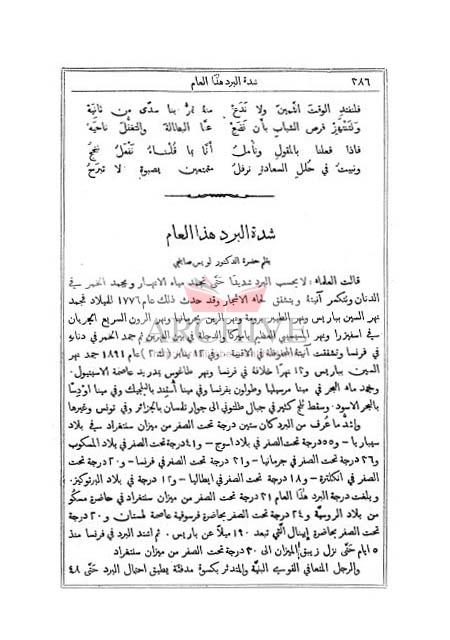 ٢٨٦ شدة البرد هذا العام
فلنفتدِ الوقت الثمين ولا ندَعْ منهُ تمرُّ بنا سدًى من ثانيَهْ
ولننتهز فرص الشباب بأن نضع عنا البطالة والتغفُّل ناحيَهْ
فاذا فعلنا بالمقول ونأمل أنَّا بما قلناهُ نفعل ننجحُ
ونبيت في حُلل السعادة نرفل متمتعين بصبوةٍ لا تبرحُ
شدة البرد هذا العام
بقلم حضرة الدكتور لويس صابنجي
قالت العلماء : لا يحسب البرد شديدًا حتى تجمد مياه الانهار وتجمد الخمر في
الدنان وتتكسر آنيتهُ ويتشقق لحاء الاشجار وقد حدث ذلك عام ١٧٧٦ للميلاد فجمد
نهر السين بباريس ونهر الطيبر برومة ونهر الرين بجرمانيا ونهر الرون السريع الجريان
في اسفيزرا ونهر المسيسبي العظيم باميركا والدجلة في بين النهرين ثم جمد الخمر في دنانهِ
في فرنسا وتشققت آنيتهُ المحفوظة في الاقبية وفي ١٢ يناير (ك٢) عام ١٨٩١ جمد نهر
السين بباريس و١٢ نهرًا خلافهُ في فرنسا ونهر طاغوس بمدريد عاصمة الاسبنيول.
وجمد ماء البحر في مينا مرسيليا وطولون بفرنسا وفي مينا أستِند بالبلجيك وفي مينا اودِسَّا
بالبحر الاسود. وسقط ثلج كثير في جبال ظلتولي الى جوار تلمسان بالجزائر وفي تونس وغيرها
واشدُّ ما عُرف من البرد كان ستين درجة تحت الصفر من ميزان سنتغراد في بلاد
سيباريا – و٥٥ درجة تحت الصفر في بلاد اسوج – و٤١ درجة تحت الصفر في بلاد المسكوب
و٢٦ درجة تحت الصفر في جرمانيا – و٢١ درجة تحت الصفر في فرنسا – و٢٠ درجة تحت
الصفر في انكلترة – و١٨ درجة تحت الصفر في ايطاليا – و١٢ درجة في بلاد البرتوكيز.
وبلغت درجة البرد هذا العام ٢١ درجة تحت الصفر من ميزان سنتغراد في حاضرة مسكو
من بلاد الروسية و٢٤ درجة تحت الصفر بحاضرة فرسوفية عاصمة لهستان و٢٠ درجة
تحت الصفر بحاضرة إيينال التي تبعد ١٩٠ ميلًا عن باريس. ثم اشتد البرد في فرنسا منذ
٥ ايام حتى نزل زيبق الميزان الى ٣٠ درجة تحت الصفر من ميزان سنتغراد
والرجل المتعافي القوي البنية والمتدثر بكسوة مدفئة يطيق احتمال البرد حتى ٤٨
ARCHIVE